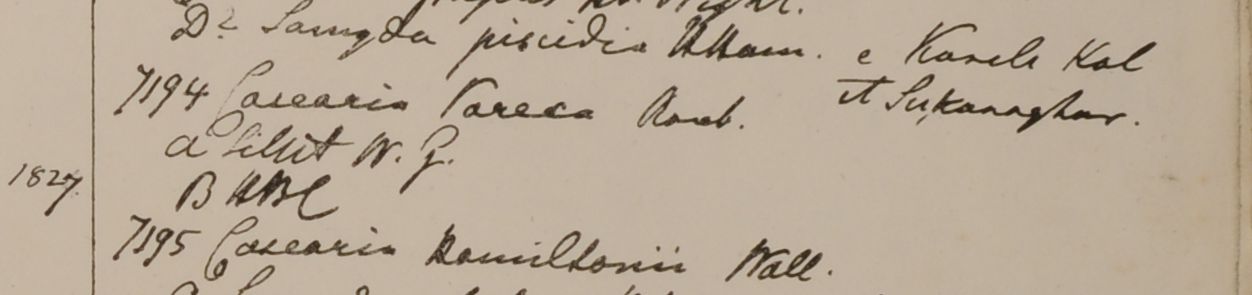 D? Samyda piscidia HHam. e Karela Kal
et Sukanaghur.
7194 Casearia Vareca Roxb.
a Sillet W. G.
1827 B HBC
7195 Casearia Hamiltonii Wall.